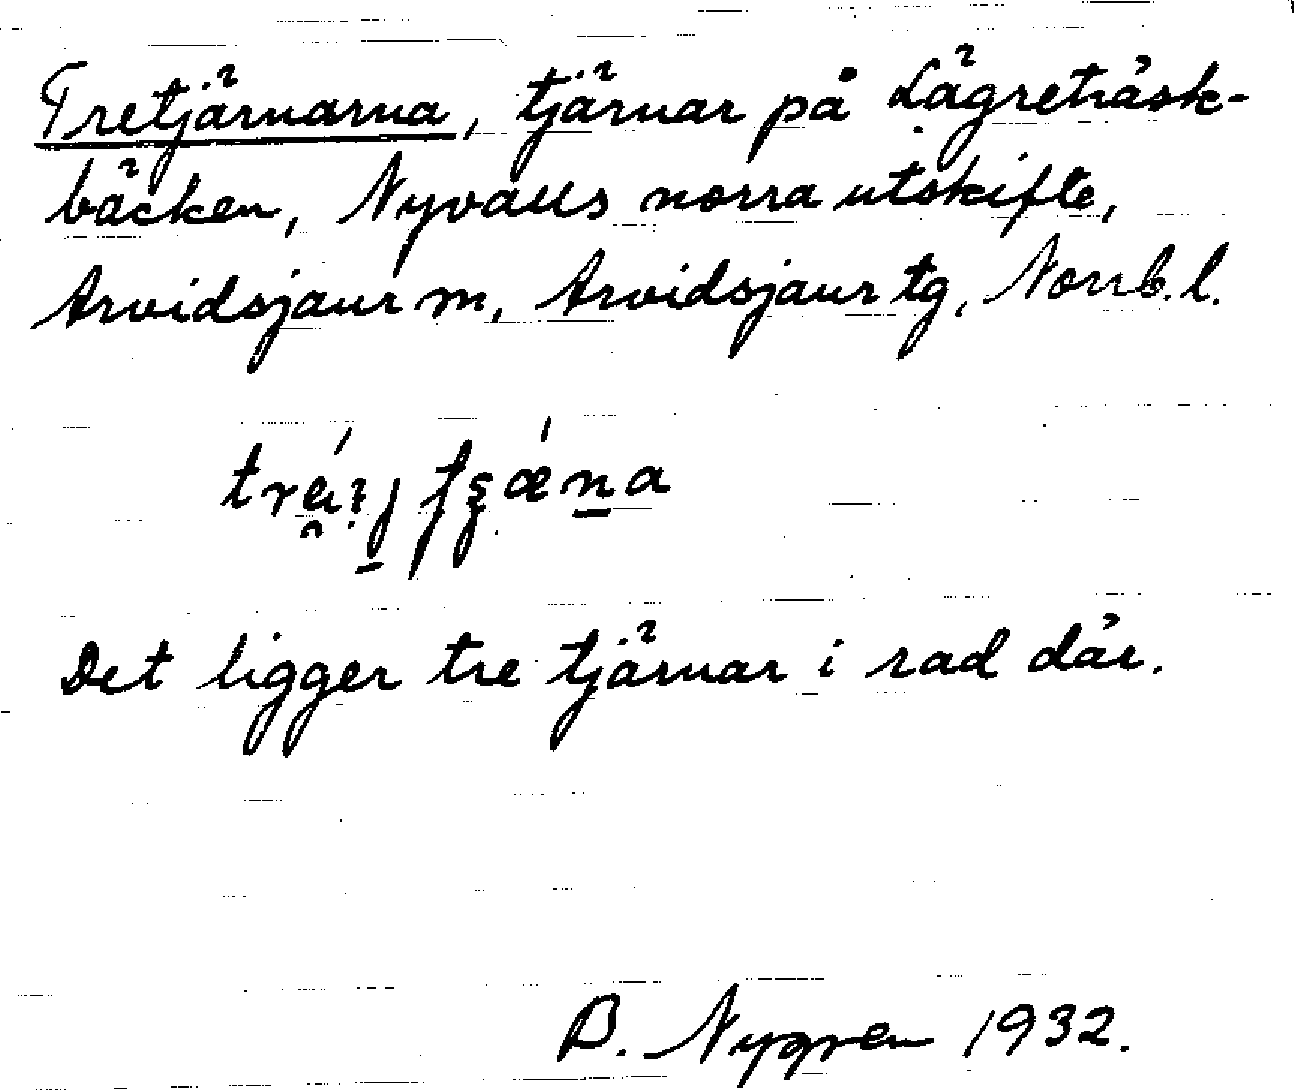 Tretjärnarna, tjärnar på Lägreträsk-
bäcken, Nyvalls norra utskifte,
Arvidsjaur m, Arvidsjaur tg, Norrb.l.
Det ligger tre tjärnar i rad där.
B. Nygren 1932.